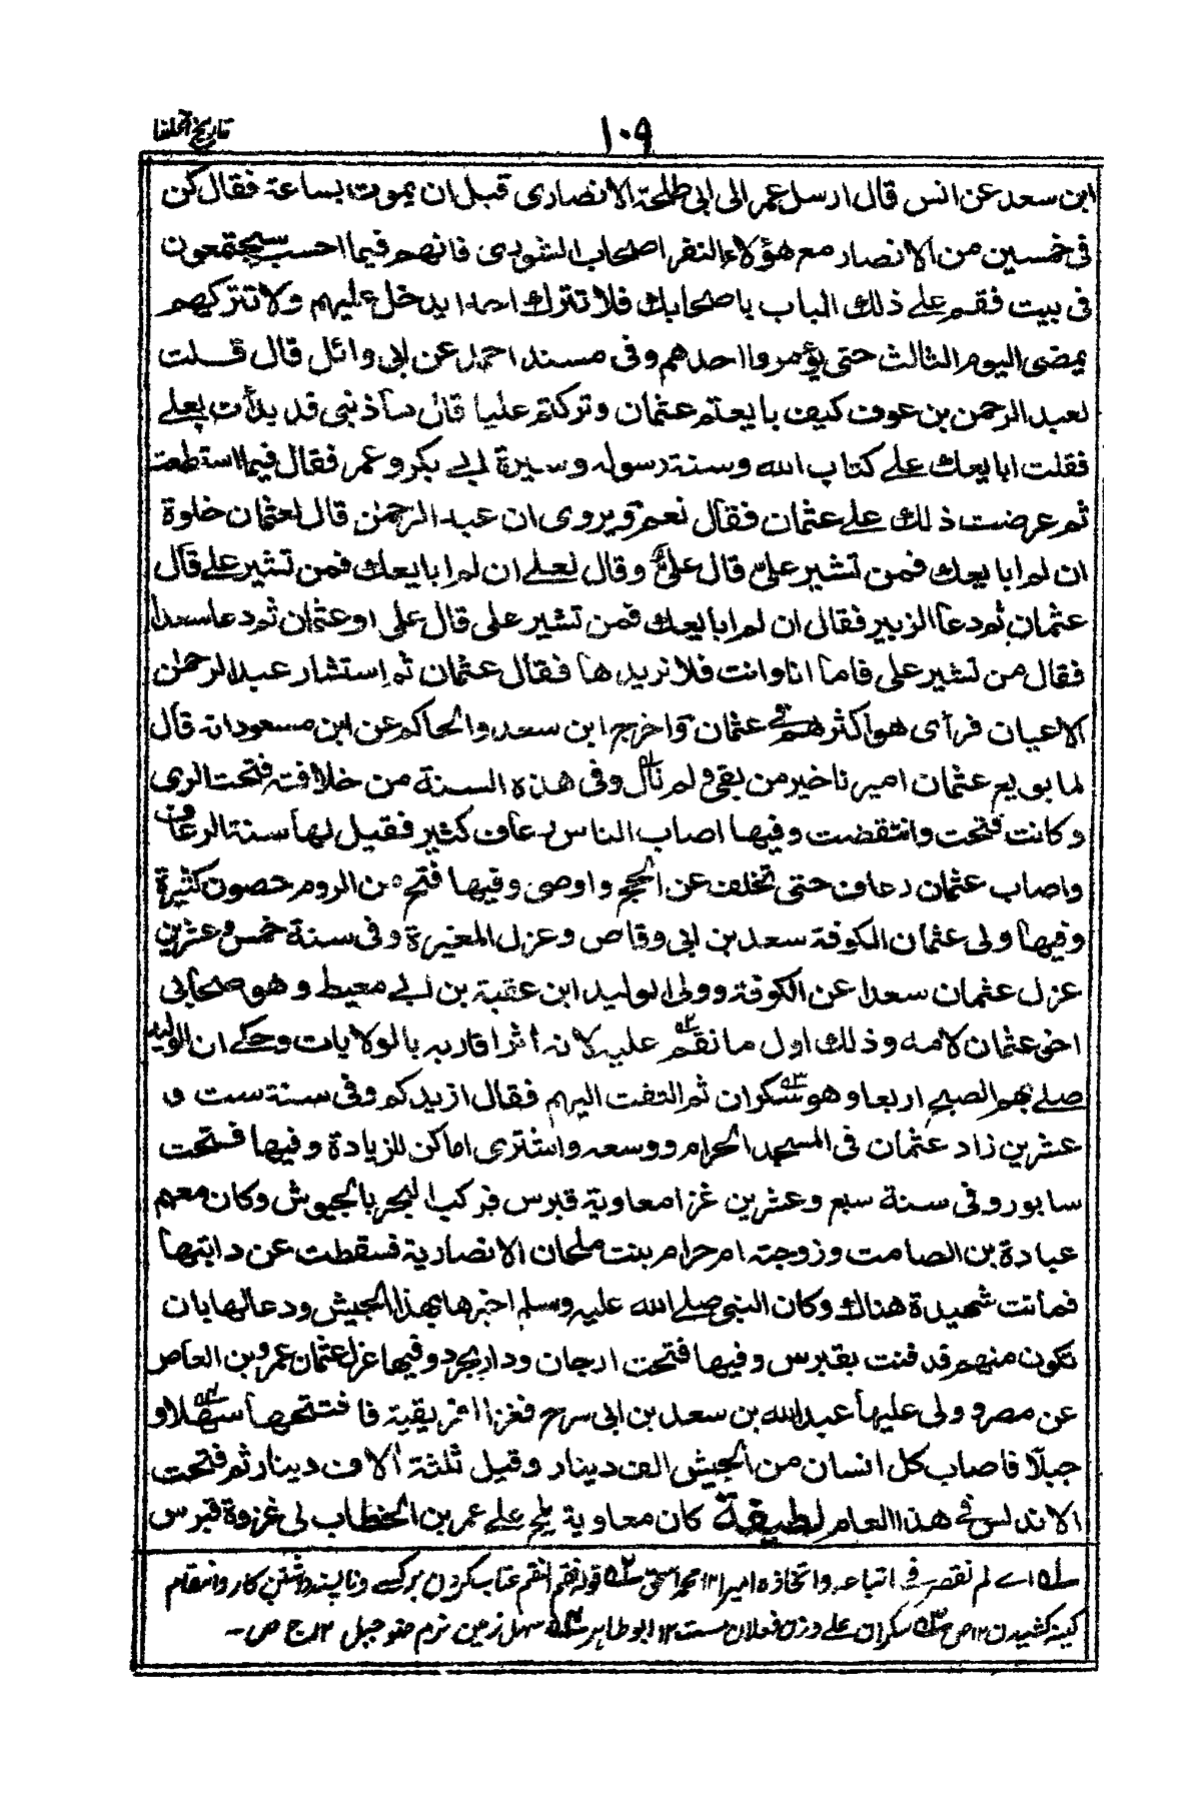 تاريخ الخلفا
١٠٩
ابن سعد عن انس قال ارسل عمر الى ابى طلحة الانصارى قبل ان يموت بساعة فقال كن
فى خمسين من الانصار مع هؤلاء النفر اصحاب الشورى فانهم فيما احسب سيجتمعون
فى بيت فقم على ذلك الباب باصحابك فلا تترك احدا يدخل عليهم ولا تتركهم
يمضى اليوم الثالث حتى يؤمروا احدهم وفى مسند احمد عن ابى وائل قال قلت
لعبد الرحمن بن عوف كيف بايعتم عثمان وتركتم عليا قال ما ذنبى قد بدأت بعلى
فقلت ابايعك على كتاب الله وسنة رسوله وسيرة ابى بكر وعمر فقال فيما استطعت
ثم عرضت ذلك على عثمان فقال نعم ويروى ان عبد الرحمن قال لعثمان خلوة
ان لم ابايعك فمن تشير علىّ قال علىّ وقال لعلى ان لم ابايعك فمن تشير على قال
عثمان ثم دعا الزبير فقال ان لم ابايعك فمن تشير على قال على او عثمان ثم دعا سعدا
فقال من تشير على فاما انا وانت فلا نريدها فقال عثمان ثم استشار عبد الرحمن
الاعيان فرأى هوا كثرهم فى عثمان واخرج ابن سعد والحاكم عن ابن مسعود انه قال
لما بويع عثمان اميرنا خير من بقى ولم نأل وفى هذه السنة من خلافته فتحت الرى
وكانت فتحت وانتقضت وفيها اصاب الناس رعاف كثير فقيل لها سنة الرعاف
واصاب عثمان رعاف حتى تخلف عن الحج واوصى وفيها فتح من الروم حصون كثيرة
وفيها ولى عثمان الكوفة سعد بن ابى وقاص وعزل المغيرة وفى سنة خمس وعشرين
عزل عثمان سعدا عن الكوفة وولى الوليد ابن عقبة بن ابى معيط وهو صحابى
اخى عثمان لامه وذلك اول ما نقم عليه لانه أثر اقاربه بالولايات وحكى ان الوليد
صلى بهم الصبح اربعا وهو سكران ثم التفت اليهم فقال ازيدكم وفى سنة ست و
عشرين زاد عثمان فى المسجد الحرام ووسعه واشترى اماكن للزيادة وفيها فتحت
سابور وفى سنة سبع وعشرين غزا معاوية قبرس فركب البحر بالجيوش وكان معهم
عبادة بن الصامت وزوجته ام حرام بنت ملحان الانصارية فسقطت عن دابتها
فماتت شهيدة هناك وكان النبى صلى الله عليه وسلم اخبرها بهذا الجيش ودعا لها بان
تكون منهم فدفنت بقبرس وفيها فتحت ارجان ودارابجرد وفيها عزل عثمان عمرو بن العاص
عن مصر وولى عليها عبد الله بن سعد بن ابى سرح فغزا افريقية فافتتحها سهلا و
جبلا فاصاب كل انسان من الجيش الف دينار وقيل ثلثة آلاف دينار ثم فتحت
الاندلس فى هذا العام لطيفة كان معاوية يلح على عمر بن الخطاب فى غزوة قبرس
سله اے لم نقصر فى اتباعه واتخاذه اميرا ١٢ محمد اسحٰق سله٢ قوله نقم انقم عتاب كردن بر كسے و ناپسند داشتن كار و انتقام
كينه كشيدن ١٢ ص سله٣ سكران على وزن فعلان مست ١٢ ابو طاهر سله٤ سهل زمين نرم ضد جبل ١٢ ج ص